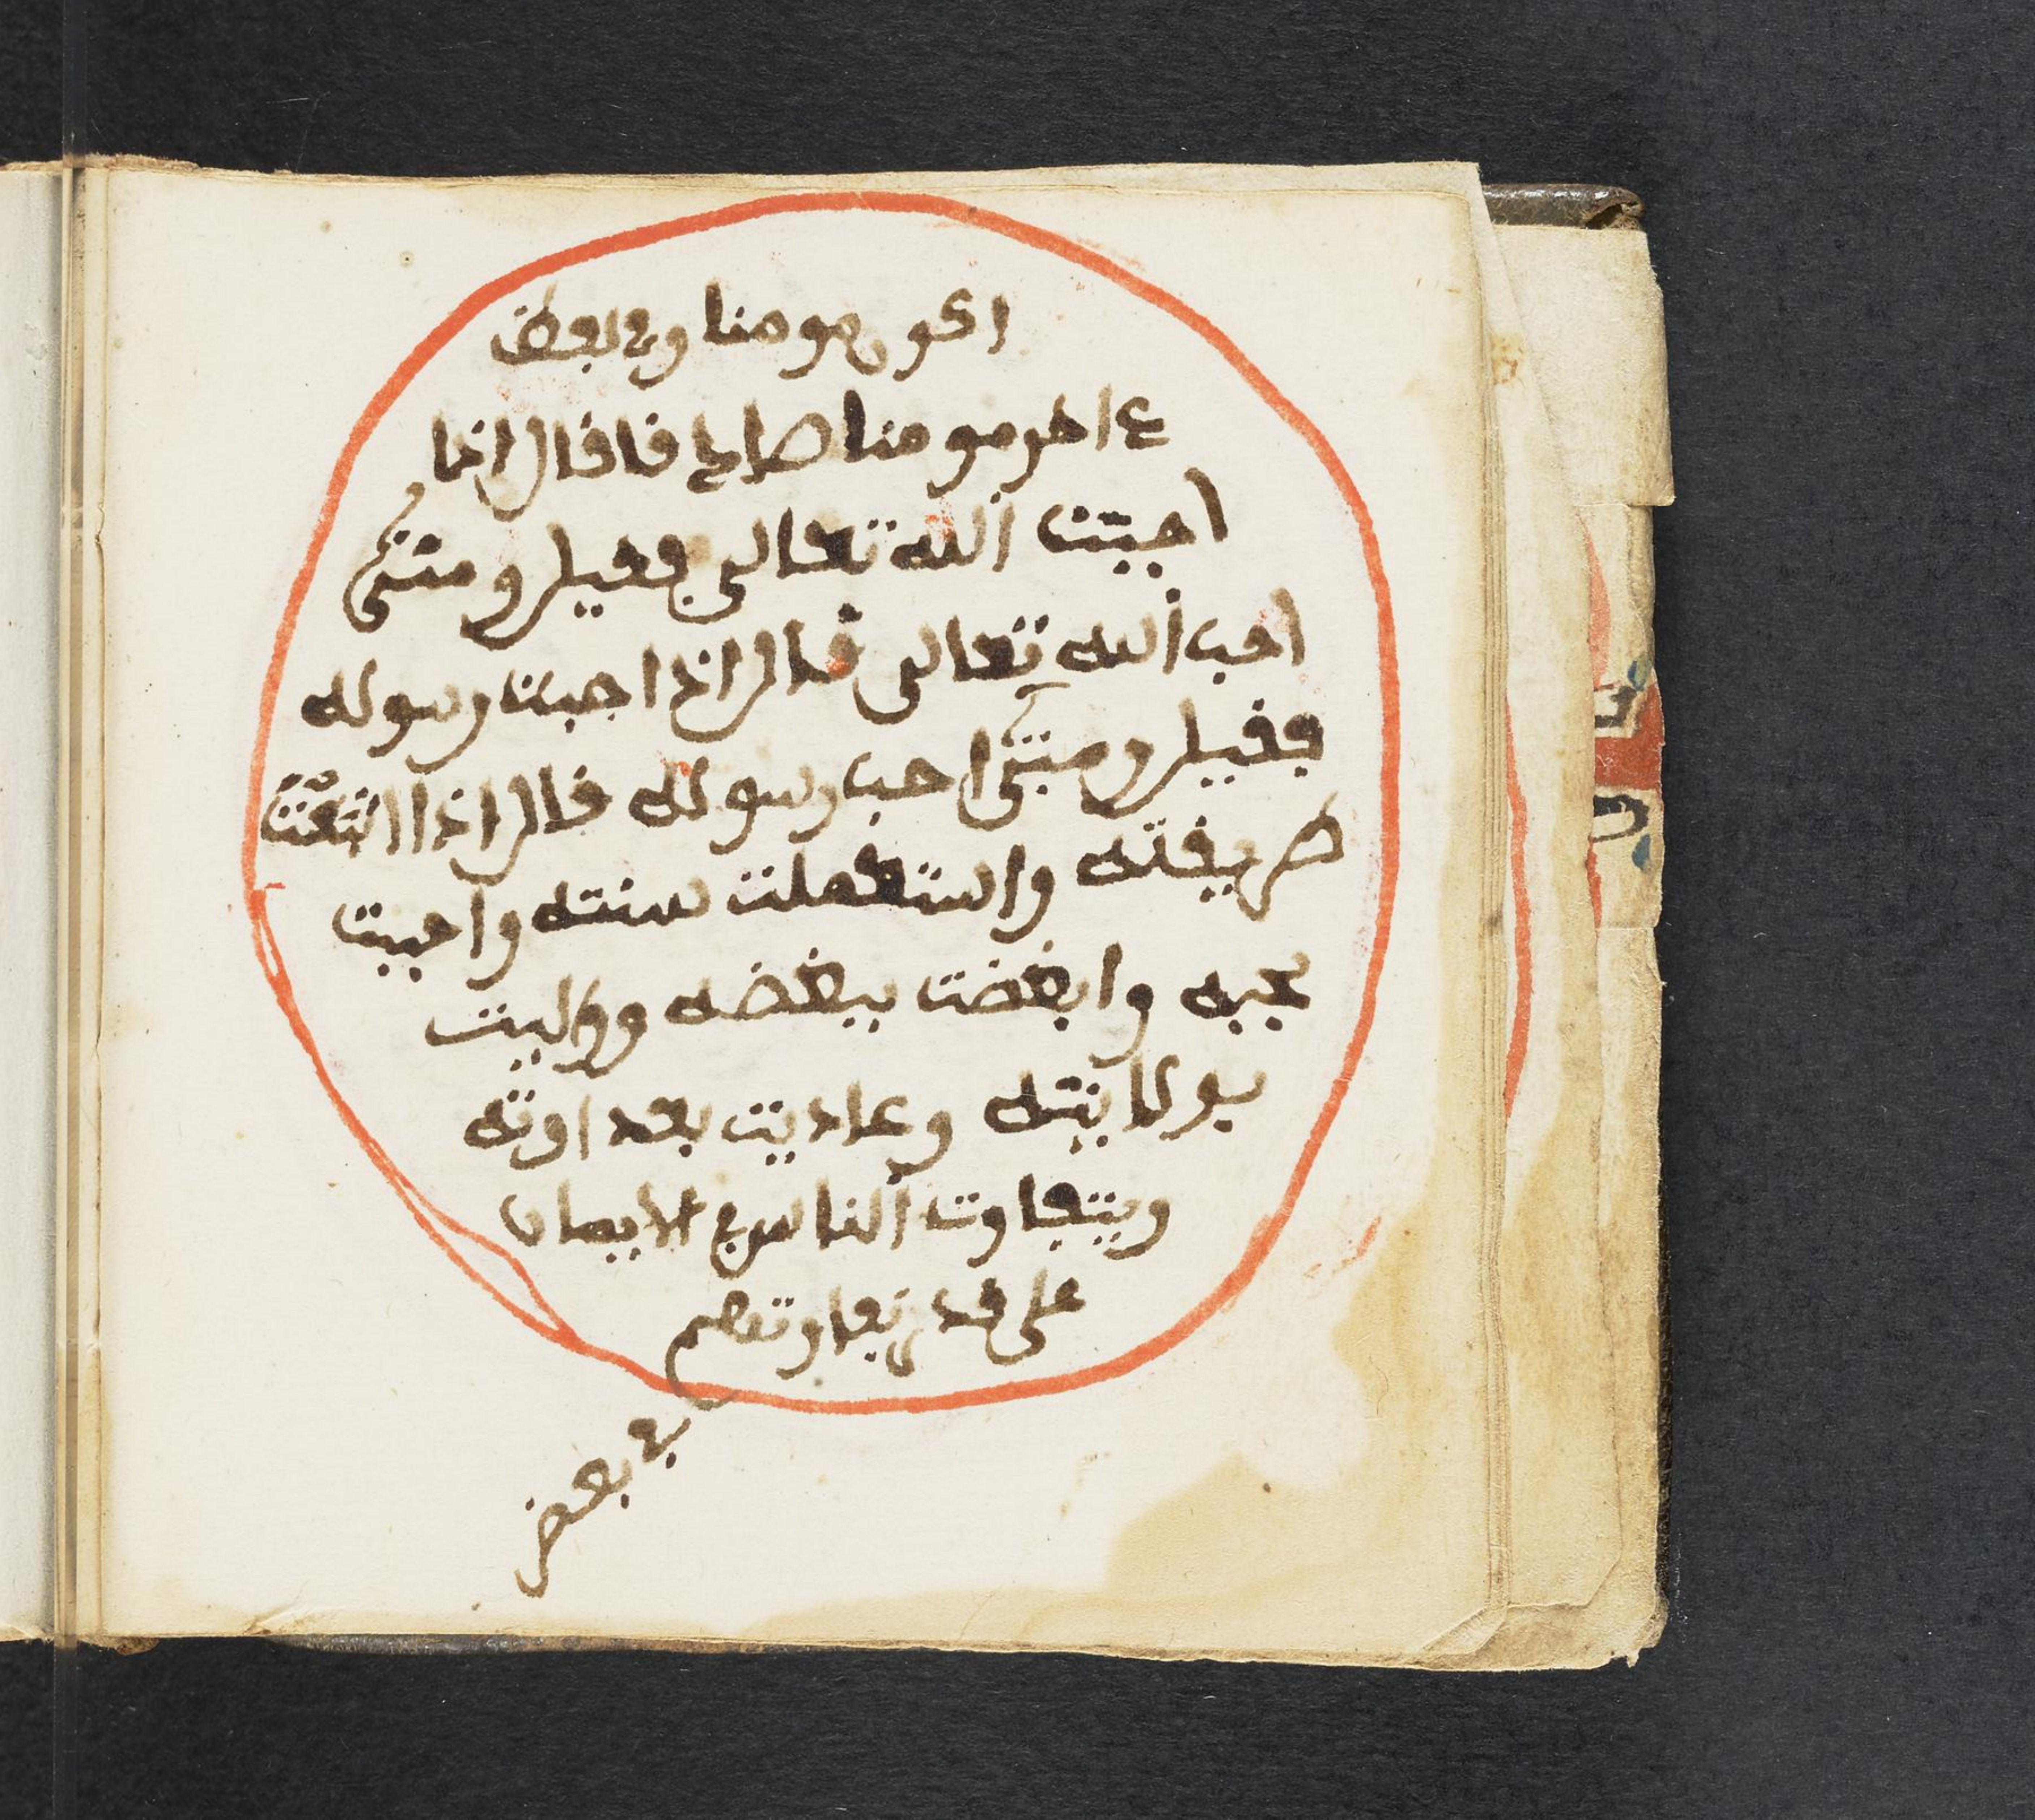 اكون مومنا وفي بعض
ءاخر مومنا صادقا قال اذا
احببت الله تعالى فقيل ومتى
احب الله تعالى قال اذا احببت رسوله
فقيل ومتى احب رسوله قال اذا اتبعت
طريقته واستعملت سنته واحببت
بحبه وابغضت ببغضه وواليت
بولايته وعاديت بعداوته
ويتفاوت الناس في الايمان
على قدر تفاوتهم
في بعض